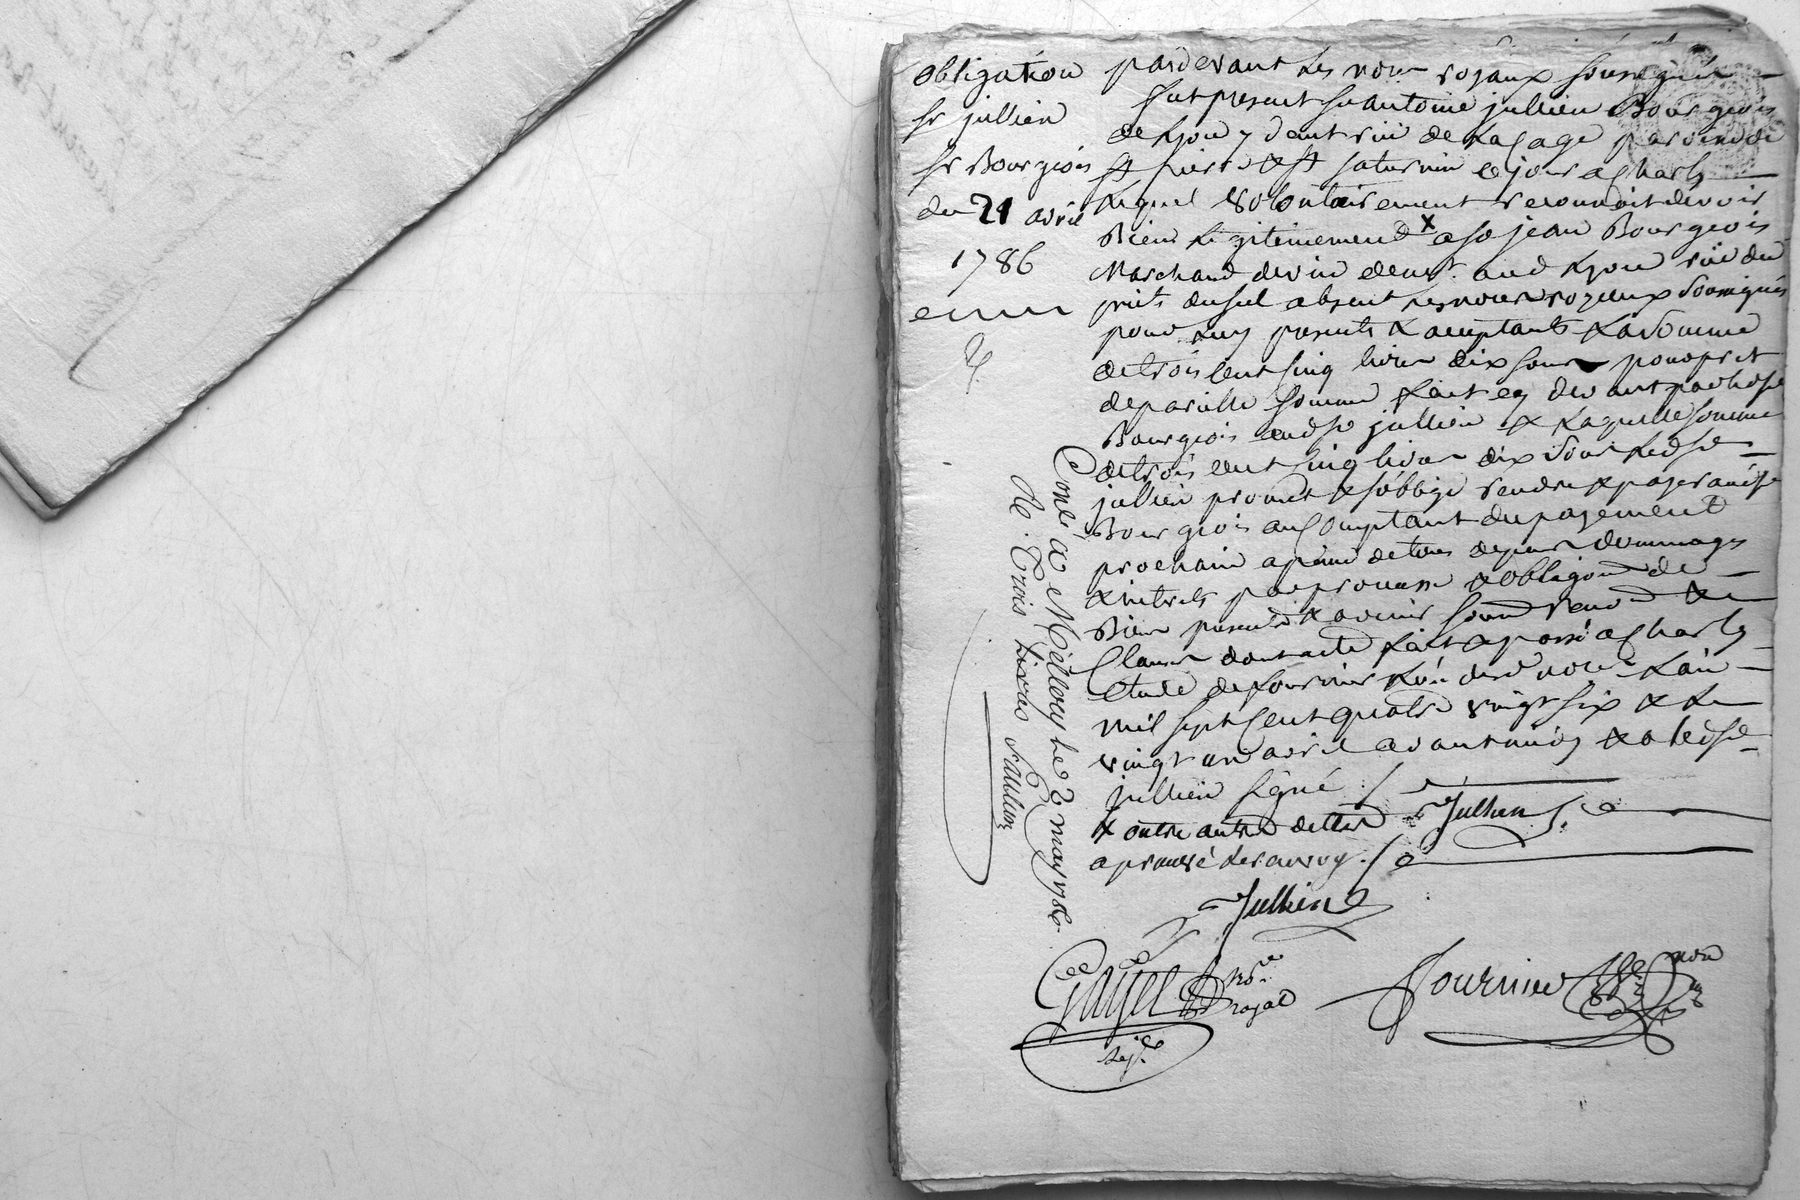 obligation
sr jullien
sr Bourgeois
du 21 avril
1786
pardevant Les nores royaux soussignés
fut present sr antoine jullien Bourgeois
de Lyon y dent rüe de La Cage paroisse de
st pierre & st saturnin ce jour a Charly
Lequel volontairement reconnoit devoir
Bien Légitimement X a sr jean Bourgeois
Marchand de vin demt. aud Lyon rüe du
puits du sel absent les nores royaux soussignés
pour Luy presents & acceptants La somme
de trois Cent Cinq livres dix sous pour prêt
de pareille somme fait cy devant par led sr
Bourgeois aud sr jullien & Laquelle somme
de trois cent Cinq livres dix sous Led sr
jullien promet & s'oblige rendre & payer aud sr
Bourgeois au Comptant du payement
prochain a peine de tous depens dommages
& interets par promesse & obligaon de
Biens presents & avenir soumon renonon &
Clauses dont acte fait & passé a Charly
étude de fournier L'un desd nores L'an
mil sept Cent quatre vingt six & Le
vingt un avril avant midy & a led sr
jullien signé
X outre autre dettes
aprouvé Le renvoy
Jullien
Jullien
Gayet nore royal
Fournier nore
Conlé a Millery le 2 may 1786
Re. Trois Livres